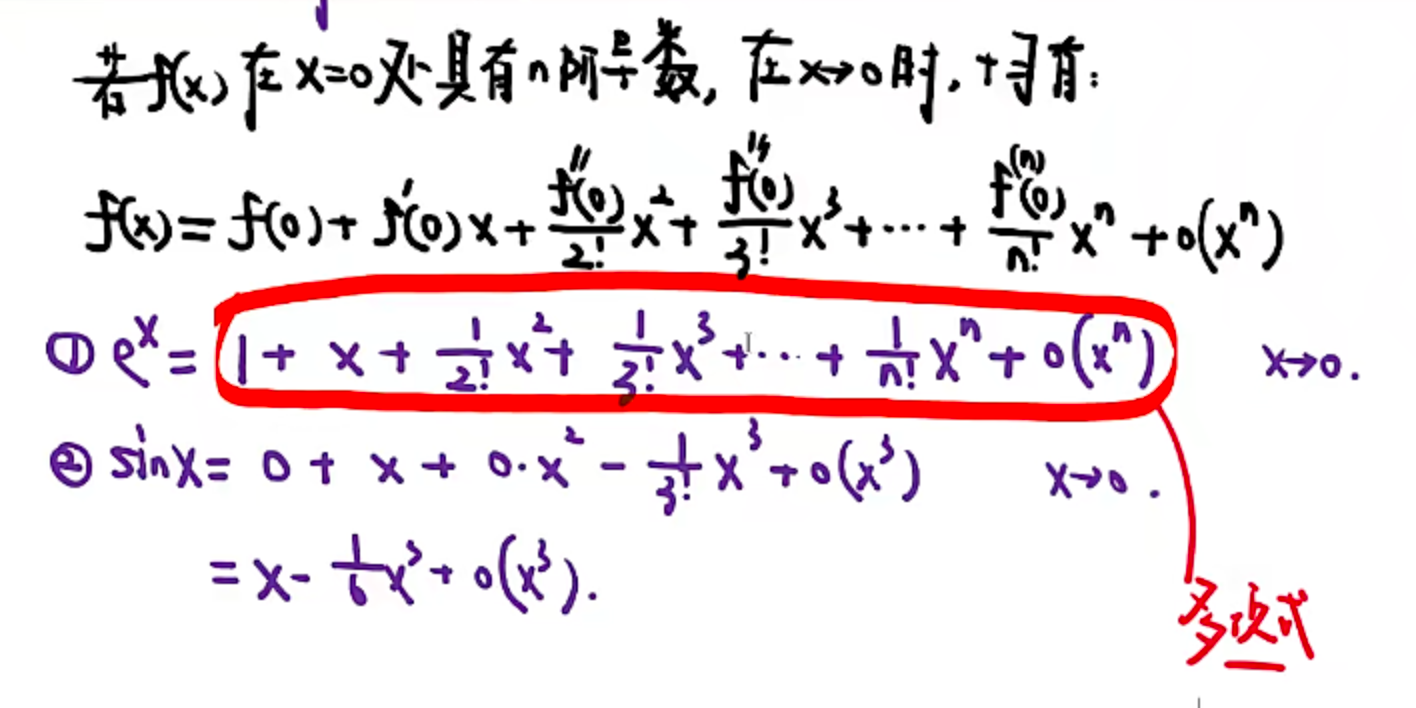 若f(x)在x=0处具有n阶导数,在x→0时,可有:
f(x)=f(0)+f'(0)x+f''(0)/2! x²+f'''(0)/3! x³+⋯+f⁽ⁿ⁾(0)/n! xⁿ+o(xⁿ)
① eˣ=1+x+1/2! x²+1/3! x³+⋯+1/n! xⁿ+o(xⁿ) x→0.
② sinx=0+x+0·x²-1/3! x³+o(x³) x→0.
=x-1/6 x³+o(x³).
多项式